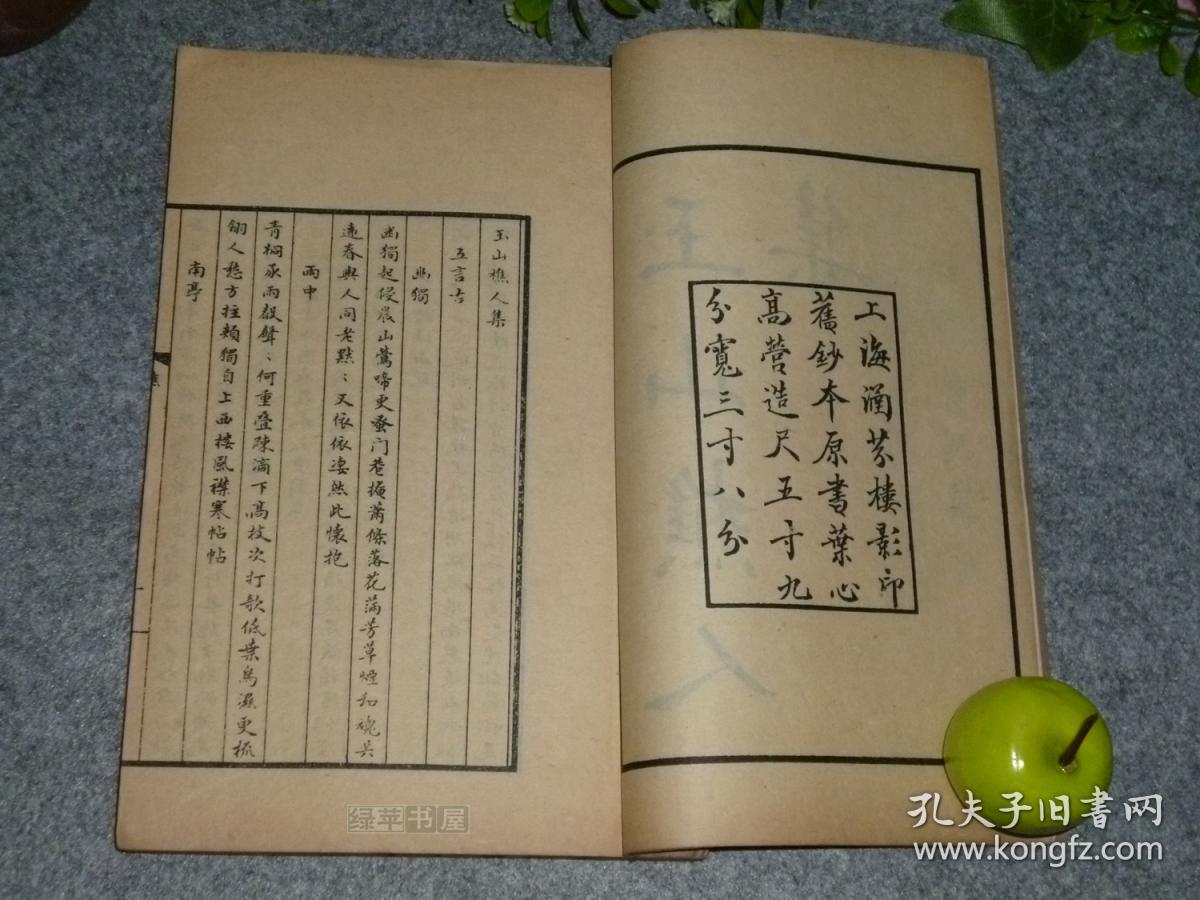 上海涵芬樓影印
舊鈔本原書葉心
高營造尺五寸九
分寬三寸八分
玉山樵人集
五言古
幽獨
幽獨起侵晨山鶯啼更蚤门巷掩蕭條落花滿芳草煙和魂共
遠春與人同老默〻又依依凄然此懷抱
雨中
青桐承雨聲聲〻何重疊疎滴下高枝次打歌低葉鳥濕更梳
翎人愁方拄頰獨自上西樓風襟寒帖帖
南亭
绿苹书屋
孔夫子旧书网
www.kongfz.com